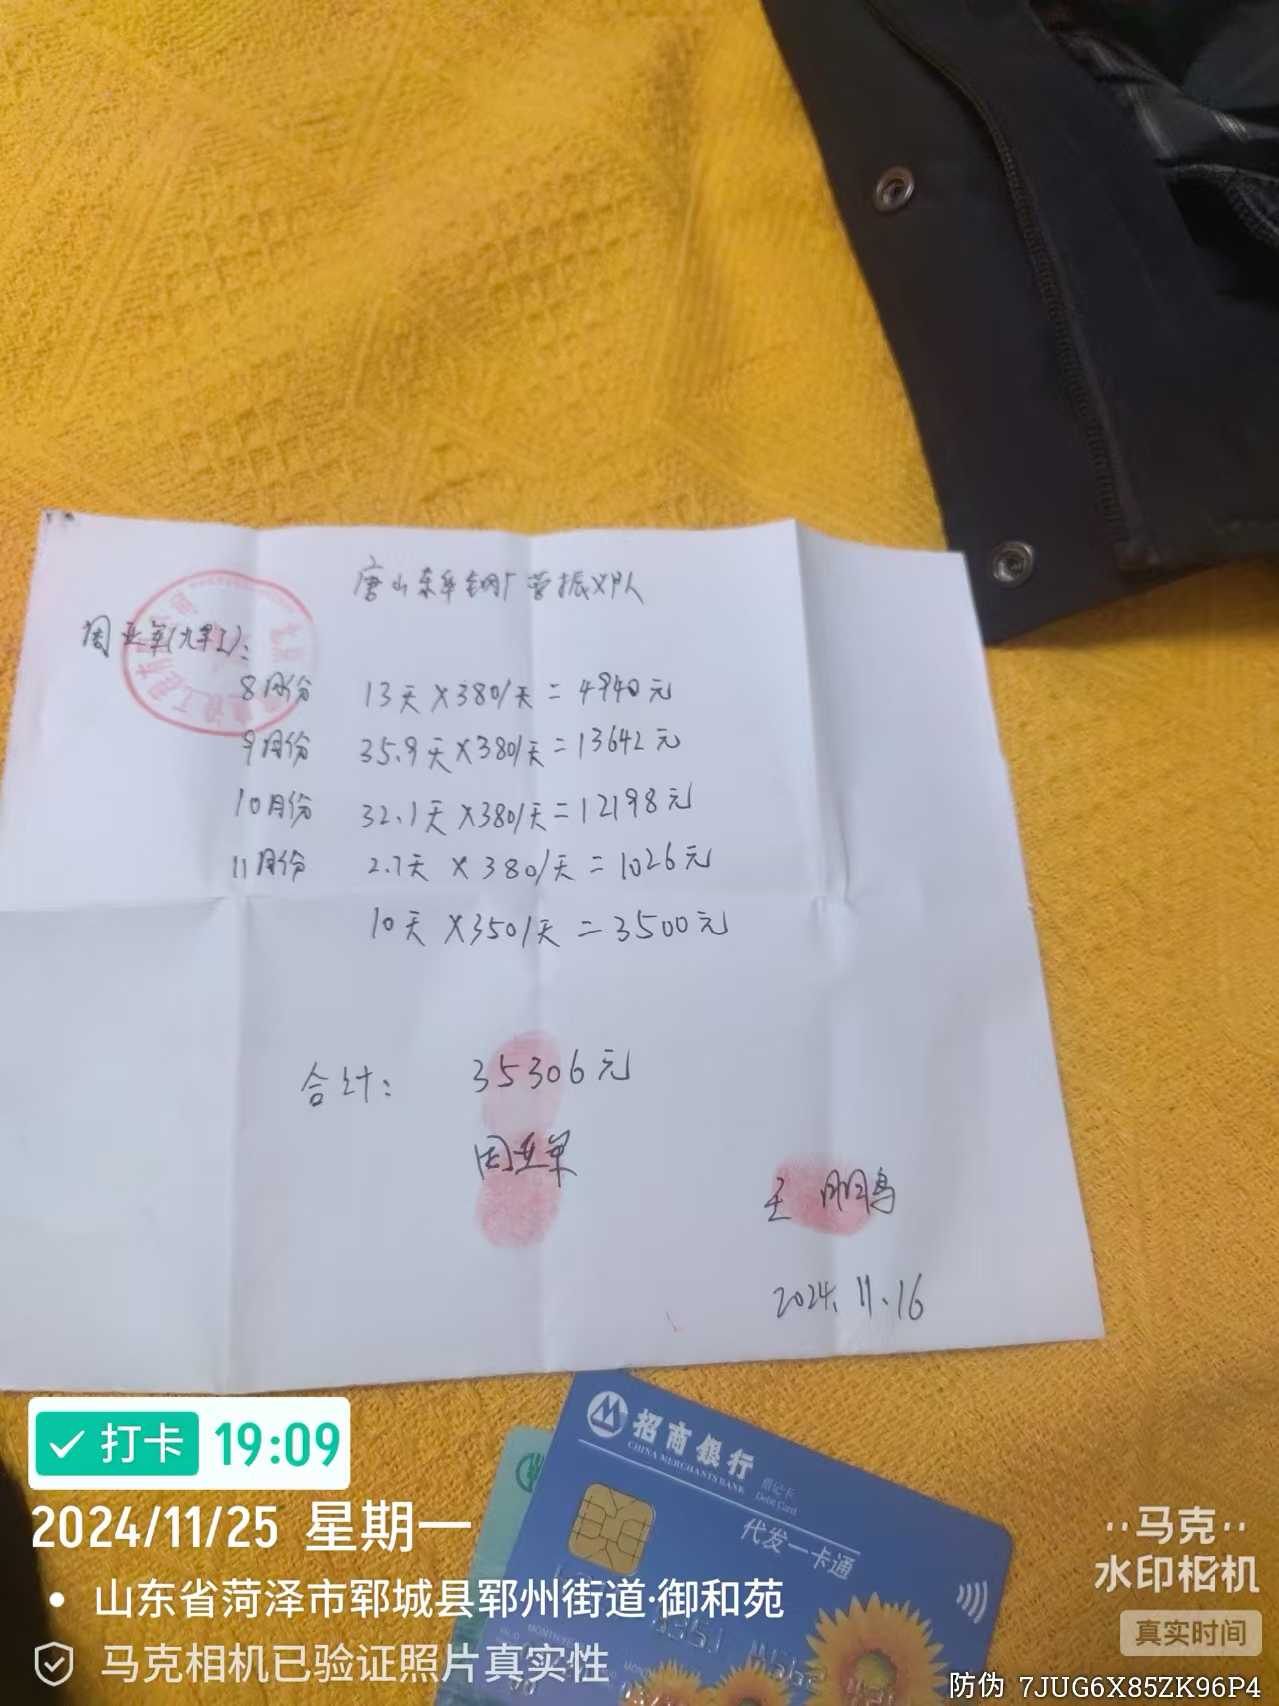 唐山东华钢厂曹振义队
周亚军(大架工):
8月份 13天×380/天=4940元
9月份 35.9天×380/天=13642元
10月份 32.1天×380/天=12198元
11月份 2.7天×380/天=1026元
10天×350/天=3500元
合计: 35306元
周亚军
王鹏
2024.11.16
招商银行
CHINA MERCHANTS BANK
借记卡
Debit Card
代发一卡通
打卡 19:09
2024/11/25 星期一
山东省菏泽市郓城县郓州街道·御和苑
马克相机已验证照片真实性
马克
水印相机
真实时间
防伪 7JUG6X85ZK96P4